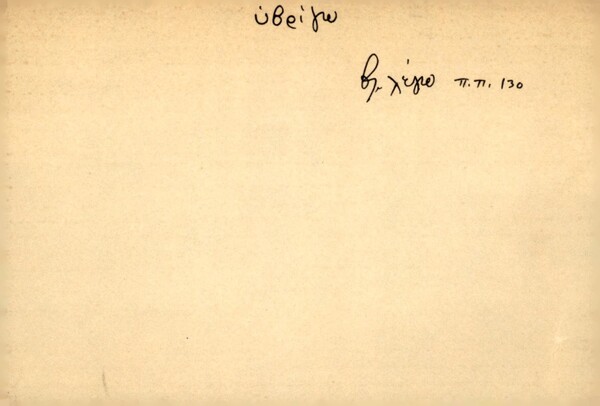 ὑβρίζω
βλ. λέγω π.π. 130